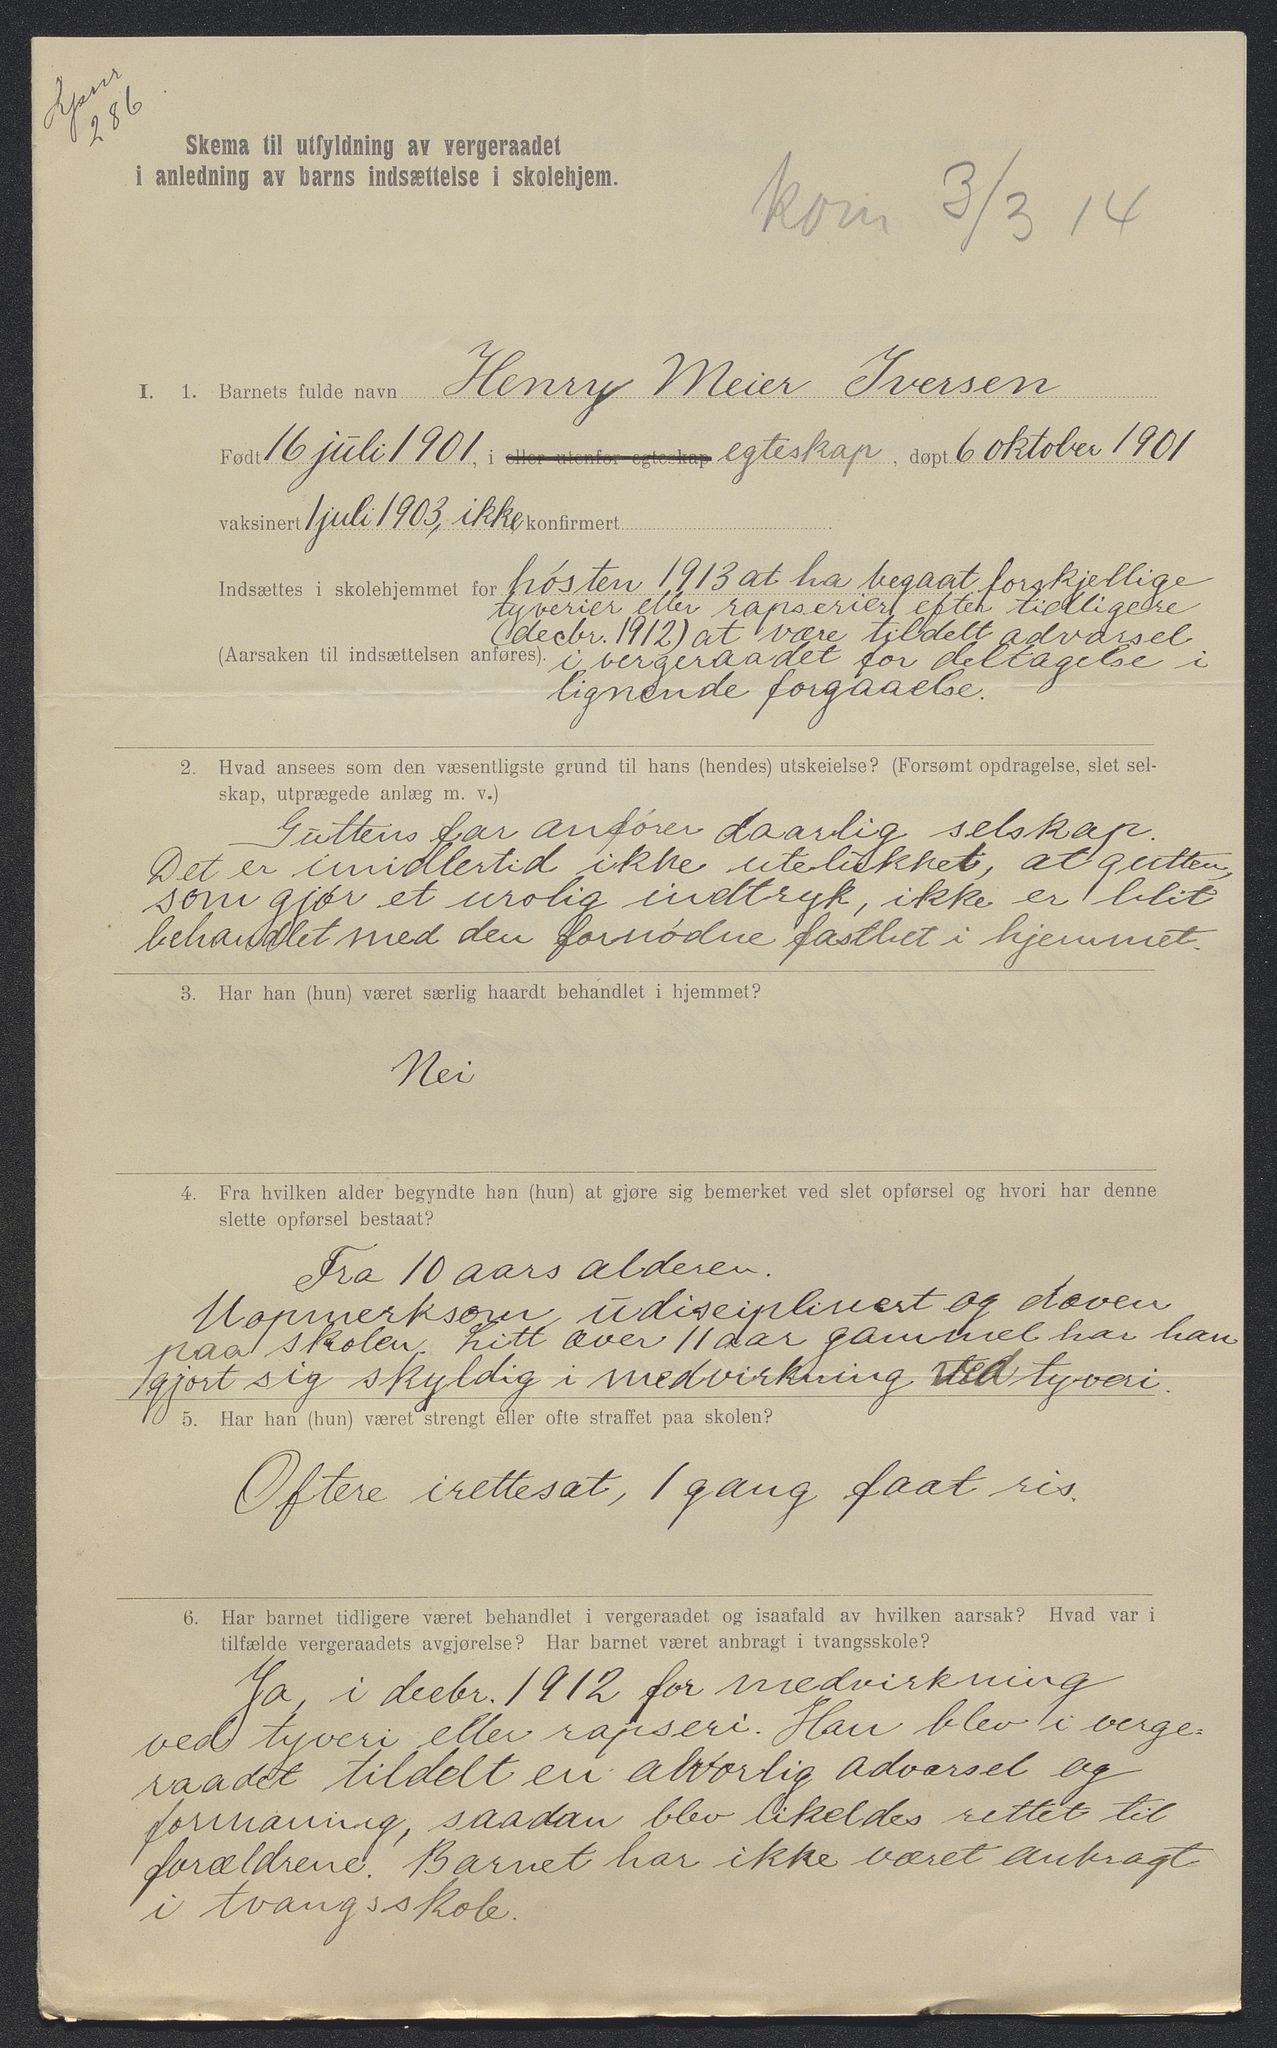 Lpnr
286
Skema til utfyldning av vergeraadet
i anledning av barns indsættelse i skolehjem.
kom 3/3 14
I. 1. Barnets fulde navn Henry Meier Iversen
Født 16 juli 1901, i eller utenfor egteskap egteskap, døpt 6 oktober 1901
vaksinert 1 juli 1903, ikke konfirmert
Indsættes i skolehjemmet for høsten 1913 at ha begaat forskjellige
tyverier eller rapserier efter tidligere
(decbr. 1912) at være tildelt advarsel
(Aarsaken til indsættelsen anføres). i vergeraadet for deltagelse i
lignende forgaaelse.
2. Hvad ansees som den væsentligste grund til hans (hendes) utskeielse? (Forsømt opdragelse, slet sel-
skap, utprægede anlæg m. v.)
Guttens far anfører daarlig selskap.
Det er imidlertid ikke utelukket, at gutten,
som gjør et urolig indtryk, ikke er blit
behandlet med den fornødne fasthet i hjemmet.
3. Har han (hun) været særlig haardt behandlet i hjemmet?
Nei
4. Fra hvilken alder begyndte han (hun) at gjøre sig bemerket ved slet opførsel og hvori har denne
slette opførsel bestaat?
Fra 10 aars alderen.
Uopmerksom, udisciplinert og doven
paa skolen. Litt over 11 aar gammel har han
gjort sig skyldig i medvirkning ved tyveri.
5. Har han (hun) været strengt eller ofte straffet paa skolen?
Oftere irettesat, 1 gang faat ris.
6. Har barnet tidligere været behandlet i vergeraadet og isaafald av hvilken aarsak? Hvad var i
tilfælde vergeraadets avgjørelse? Har barnet været anbragt i tvangsskole?
Ja, i decbr. 1912 for medvirkning
ved tyveri eller rapseri. Han blev i verge=
raadet tildelt en alvorlig advarsel og
formaning, saadan blev likeledes rettet til
forældrene. Barnet har ikke været anbragt
i tvangsskole.